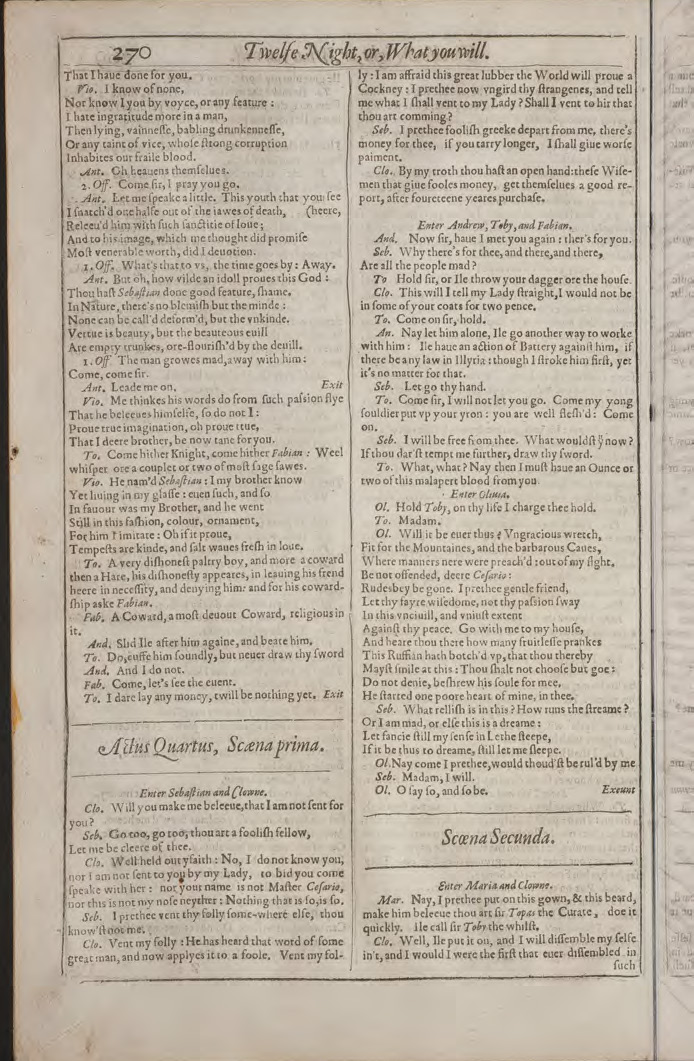 270
Twelfe Night, or, What you will.
That I haue done for you.
Vio. I know of none,
Nor know I you by voyce, or any feature :
I hate ingratitude more in a man,
Then lying, vainnesse, babling drunkennesse,
Or any taint of vice, whose strong corruption
Inhabites our fraile blood.
Ant. Oh heauens themselues.
2. Off. Come sir, I pray you go.
Ant. Let me speake a little. This youth that you see
I snatch'd one halfe out of the iawes of death, (heere,
Releeu'd him with such sanctitie of loue ;
And to his image, which me thought did promise
Most venerable worth, did I deuotion.
1. Off. What's that to vs, the time goes by : Away.
Ant. But oh, how vilde an idoll proues this God :
Thou hast Sebastian done good feature, shame.
In Nature, there's no blemish but the minde :
None can be call'd deform'd, but the vnkinde.
Vertue is beauty, but the beauteous euill
Are empty trunkes, ore-flourish'd by the deuill.
1. Off. The man growes mad, away with him :
Come, come sir.
Ant. Leade me on. Exit
Vio. Me thinkes his words do from such passion flye
That he beleeues himselfe, so do not I :
Proue true imagination, oh proue true,
That I deere brother, be now tane for you.
To. Come hither Knight, come hither Fabian : Weel
whisper ore a couplet or two of most sage sawes.
Vio. He nam'd Sebastian : I my brother know
Yet liuing in my glasse : euen such, and so
In fauour was my Brother, and he went
Still in this fashion, colour, ornament,
For him I imitate : Oh if it proue,
Tempests are kinde, and salt waues fresh in loue.
To. A very dishonest paltry boy, and more a coward
then a Hare, his dishonesty appeares, in leauing his frend
heere in necessity, and denying him : and for his coward-
ship aske Fabian.
Fab. A Coward, a most deuout Coward, religious in
it.
And. Slid Ile after him againe, and beate him.
To. Do, cuffe him soundly, but neuer draw thy sword
And. And I do not.
Fab. Come, let's see the euent.
To. I dare lay any money, twill be nothing yet. Exit
Actus Quartus, Scæna prima.
Enter Sebastian and Clowne.
Clo. Will you make me beleeue, that I am not sent for
you ?
Seb. Go too, go too, thou art a foolish fellow,
Let me be cleere of thee.
Clo. Well held out yfaith : No, I do not know you,
nor I am not sent to you by my Lady, to bid you come
speake with her : nor your name is not Master Cesario,
nor this is not my nose neyther : Nothing that is so, is so.
Seb. I prethee vent thy folly some-where else, thou
know'st not me.
Clo. Vent my folly : He has heard that word of some
great man, and now applyes it to a foole. Vent my fol-
ly : I am affraid this great lubber the World will proue a
Cockney : I prethee now vngird thy strangenes, and tell
me what I shall vent to my Lady ? Shall I vent to hir that
thou art comming ?
Seb. I prethee foolish greeke depart from me, there's
money for thee, if you tarry longer, I shall giue worse
paiment.
Clo. By my troth thou hast an open hand : these Wise-
men that giue fooles money, get themselues a good re-
port, after foureteene yeares purchase.
Enter Andrew, Toby, and Fabian.
And. Now sir, haue I met you again : ther's for you.
Seb. Why there's for thee, and there, and there,
Are all the people mad ?
To Hold sir, or Ile throw your dagger ore the house.
Clo. This will I tell my Lady straight, I would not be
in some of your coats for two pence.
To. Come on sir, hold.
An. Nay let him alone, Ile go another way to worke
with him : Ile haue an action of Battery against him, if
there be any law in Illyria : though I stroke him first, yet
it's no matter for that.
Seb. Let go thy hand.
To. Come sir, I will not let you go. Come my yong
souldier put vp your yron : you are well flesh'd : Come
on.
Seb. I will be free from thee. What wouldst yͧ now ?
If thou dar'st tempt me further, draw thy sword.
To. What, what ? Nay then I must haue an Ounce or
two of this malapert blood from you.
Enter Oliuia.
Ol. Hold Toby, on thy life I charge thee hold.
To. Madam.
Ol. Will it be euer thus ? Vngracious wretch,
Fit for the Mountaines, and the barbarous Caues,
Where manners nere were preach'd : out of my sight.
Be not offended, deere Cesario :
Rudesbey be gone. I prethee gentle friend,
Let thy fayre wisedome, not thy passion sway
In this vnciuill, and vniust extent
Against thy peace. Go with me to my house,
And heare thou there how many fruitlesse prankes
This Ruffian hath botch'd vp, that thou thereby
Mayst smile at this : Thou shalt not choose but goe :
Do not denie, beshrew his soule for mee,
He started one poore heart of mine, in thee.
Seb. What rellish is in this ? How runs the streame ?
Or I am mad, or else this is a dreame :
Let fancie still my sense in Lethe steepe,
If it be thus to dreame, still let me sleepe.
Ol. Nay come I prethee, would thoud'st be rul'd by me
Seb. Madam, I will.
Ol. O say so, and so be. Exeunt
Scœna Secunda.
Enter Maria and Clowne.
Mar. Nay, I prethee put on this gown, & this beard,
make him beleeue thou art sir Topas the Curate, doe it
quickly. Ile call sir Toby the whilst.
Clo. Well, Ile put it on, and I will dissemble my selfe
in't, and I would I were the first that euer dissembled in
such